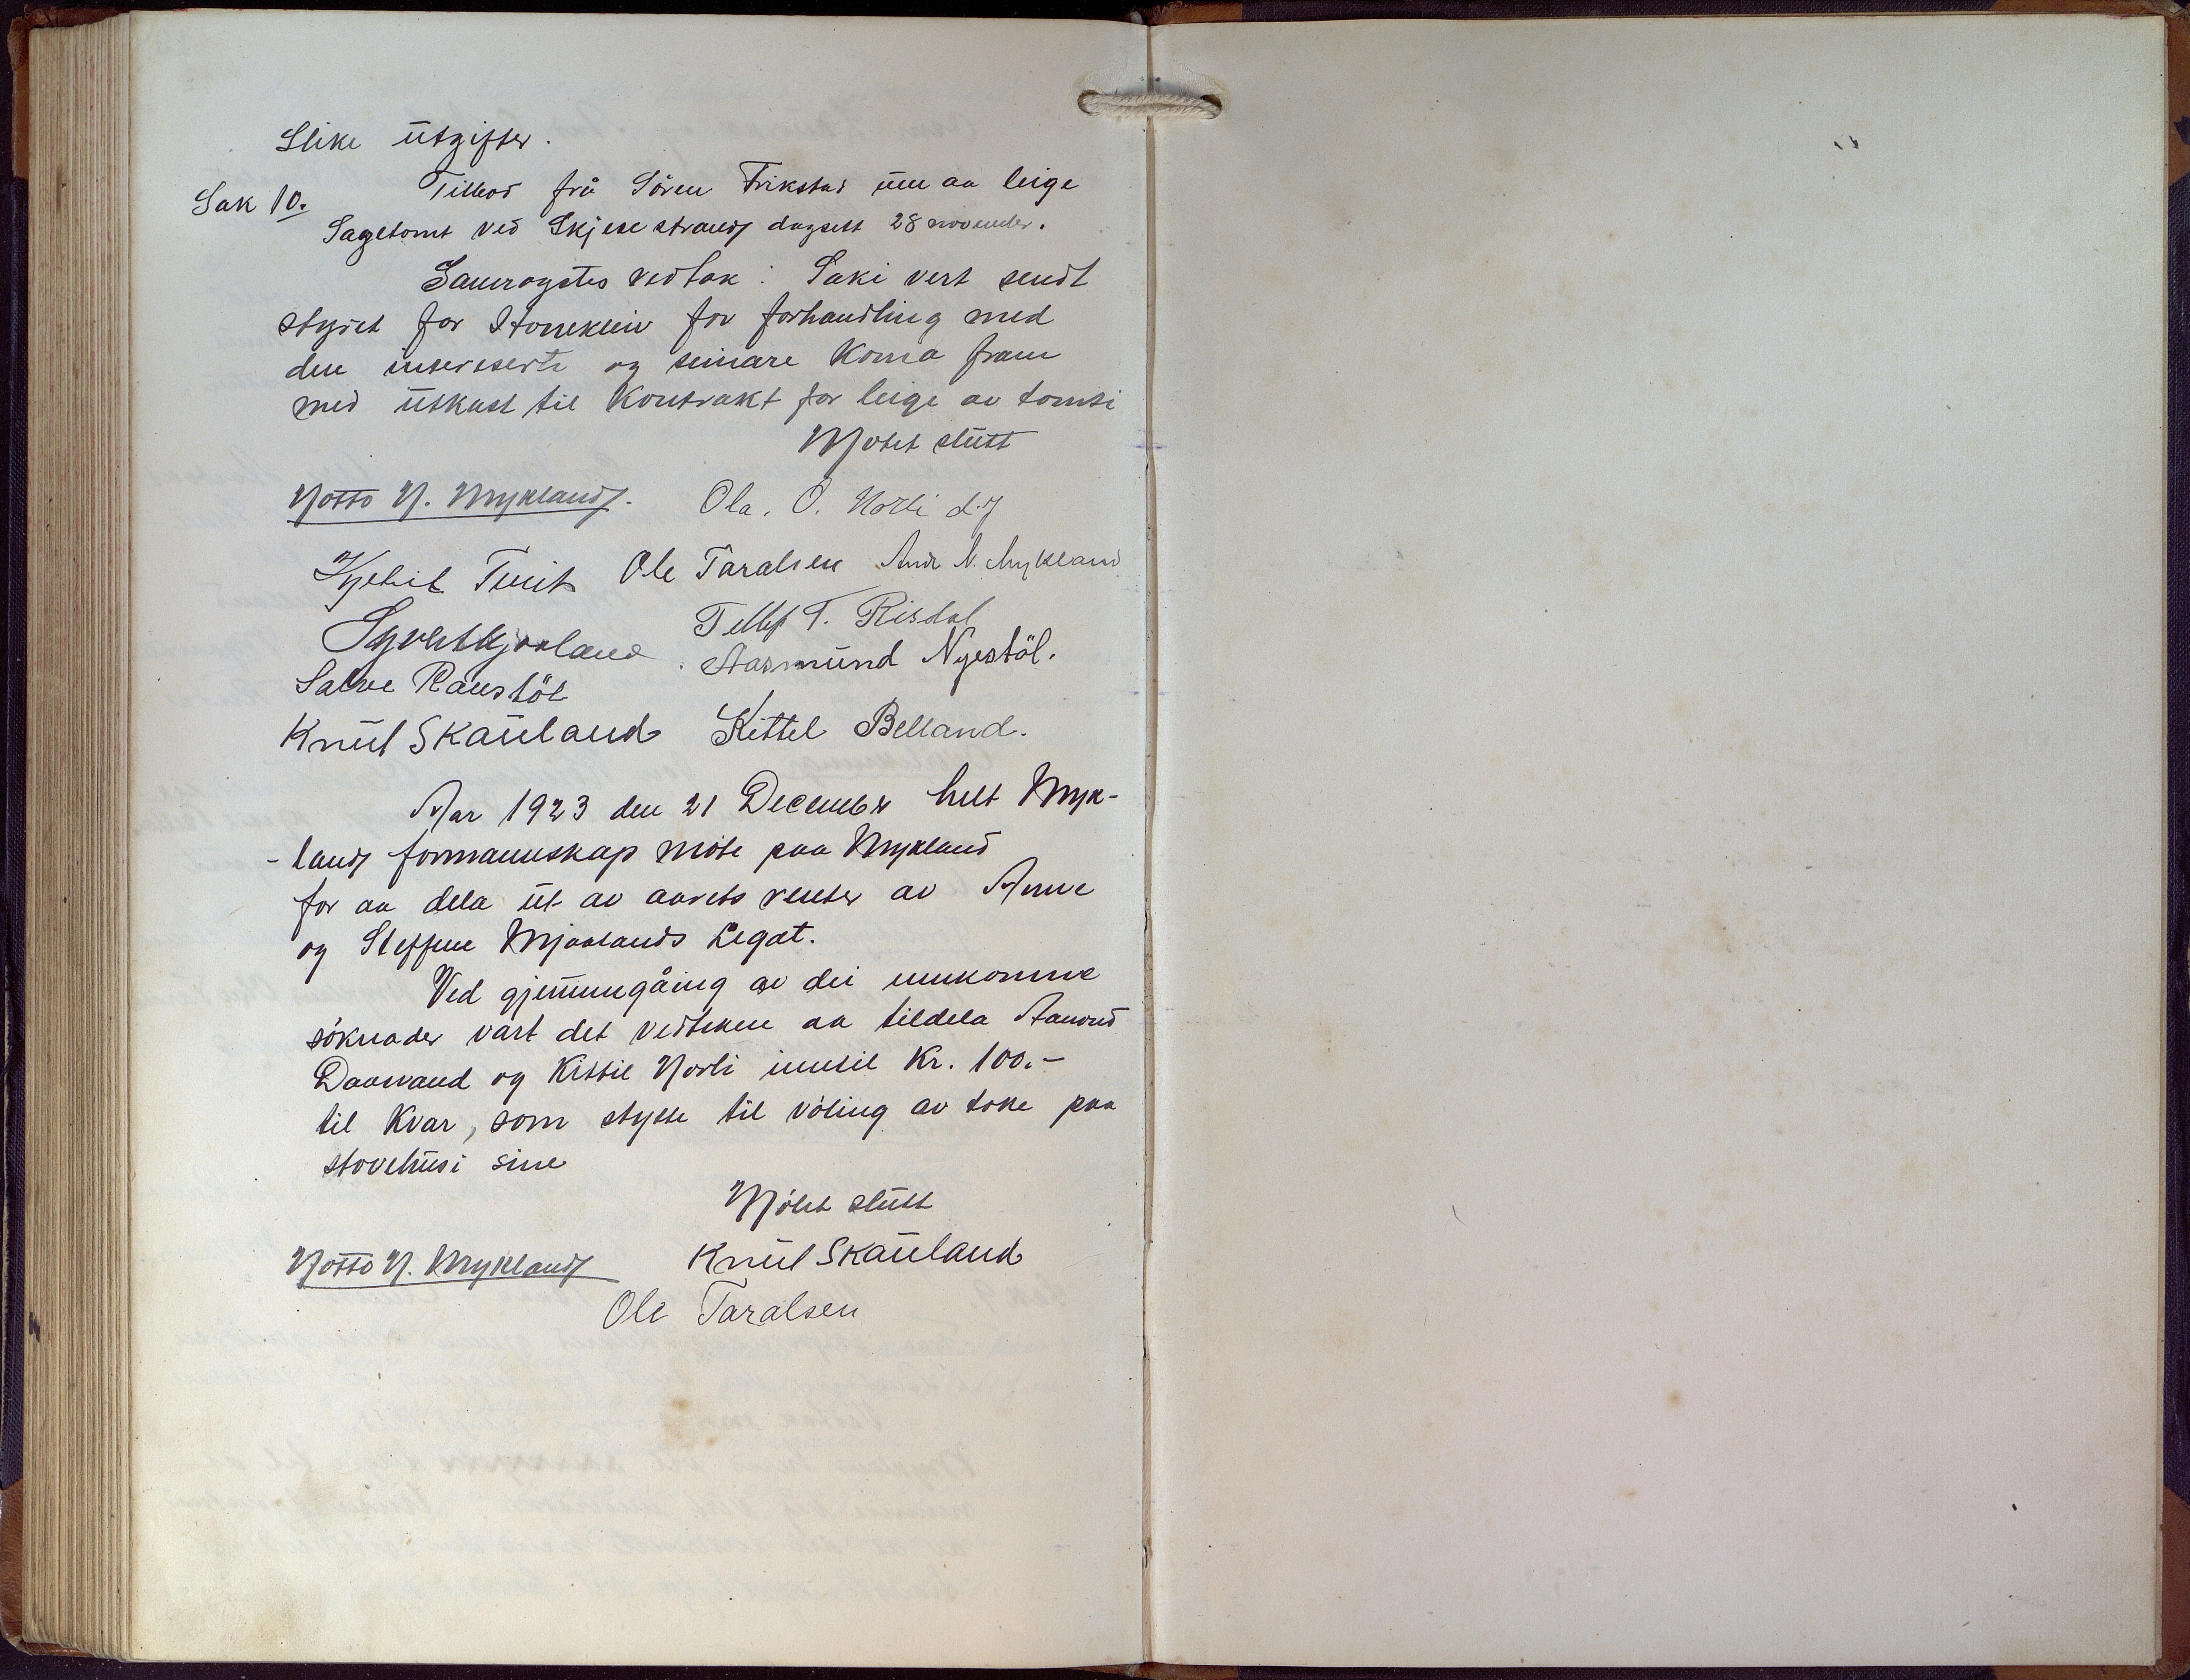 Slike ütgifter.
Sak 10. Tilbod frå Sören Frikstad üm aa leige
Sagetomt ved Skjese strand dagsett 28 november.
Samrøystes vedtak: Saki vert sendt
styret for Storekleiv for forhandling med
den interesserte og seinare koma fram
med ütkast til kontrakt for leige av tomti
Møtet slütt
Notto N. Mykland. Ola. O. Norli d.y
Kjetil Tveit Ole Taralsen And N. Mykland
Syvert Mjaaland Tellef T. Risdal
Salve Raustöl Aasmünd Nyestöl.
Knüt Skaüland Kittel Belland.
Aar 1923 den 21 December helt Myk-
-land formannskap möte paa Mykland
for aa dela üt av aarets renter av Anne
og Steffen Mjaalands Legat.
Ved gjennumgåing av dei innkomne
söknader vart det vedteken aa tildela Aanond
Daavand og Kittil Norli inntil Kr. 100.-
til kvar, som stytte til völing av take paa
stovehüsi sine
Mötet slütt
Notto N. Mykland Knüt Skaüland
Ole Taralsen